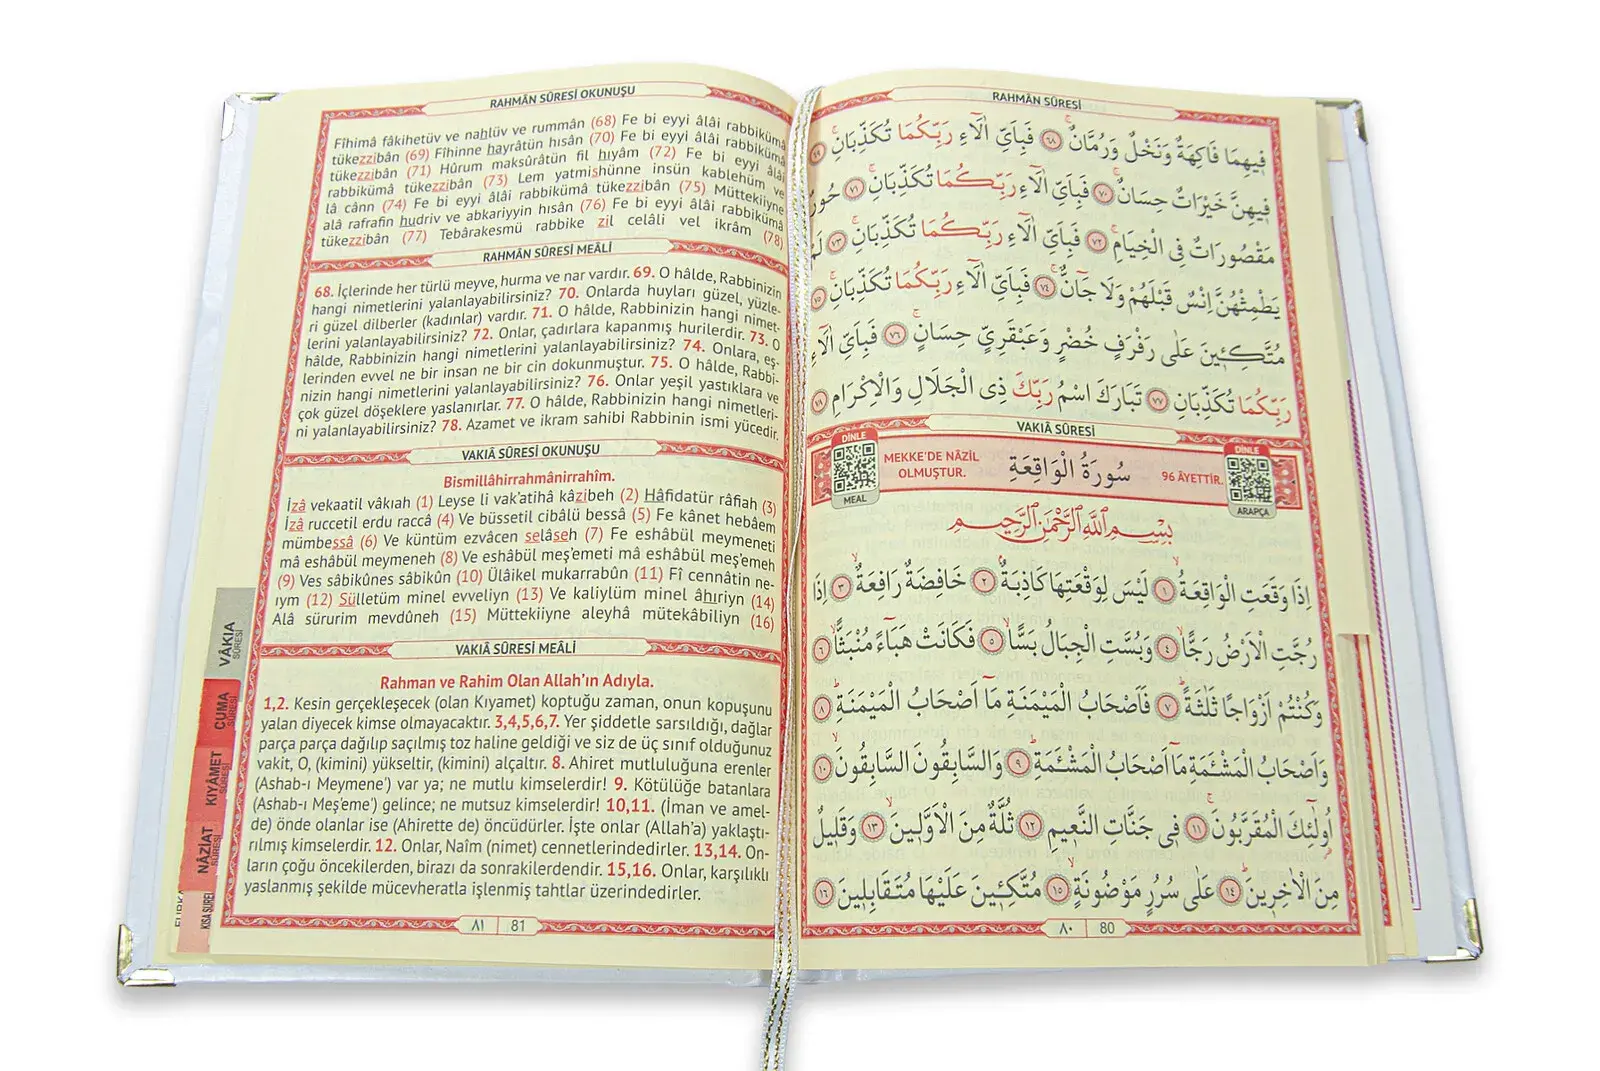 RAHMÂN SÛRESİ
فِيهِمَا فَاكِهَةٌ وَنَخْلٌ وَرُمَّانٌۚ ﴿٦٨﴾ فَبِاَيِّ اٰلَٓاءِ رَبِّكُمَا تُكَذِّبَانِۚ ﴿٦٩﴾
فِيهِنَّ خَيْرَاتٌ حِسَانٌۚ ﴿٧٠﴾ فَبِاَيِّ اٰلَٓاءِ رَبِّكُمَا تُكَذِّبَانِۚ ﴿٧١﴾ حُورٌ
مَقْصُورَاتٌ فِي الْخِيَامِۚ ﴿٧٢﴾ فَبِاَيِّ اٰلَٓاءِ رَبِّكُمَا تُكَذِّبَانِۚ ﴿٧٣﴾ لَمْ
يَطْمِثْهُنَّ اِنْسٌ قَبْلَهُمْ وَلَا جَٓانٌّۚ ﴿٧٤﴾ فَبِاَيِّ اٰلَٓاءِ رَبِّكُمَا تُكَذِّبَانِۚ ﴿٧٥﴾
مُتَّكِـِٔينَ عَلٰى رَفْرَفٍ خُضْرٍ وَعَبْقَرِيٍّ حِسَانٍۚ ﴿٧٦﴾ فَبِاَيِّ اٰلَٓاءِ
رَبِّكُمَا تُكَذِّبَانِ ﴿٧٧﴾ تَبَارَكَ اسْمُ رَبِّكَ ذِي الْجَلَالِ وَالْاِكْرَامِ ﴿٧٨﴾
VAKIÂ SÛRESİ
DİNLE
MEAL
MEKKE'DE NÂZİL
OLMUŞTUR.
سُورَةُ الْوَاقِعَةِ
96 ÂYETTİR.
DİNLE
ARAPÇA
بِسْمِ اللّٰهِ الرَّحْمٰنِ الرَّحِيمِ
اِذَا وَقَعَتِ الْوَاقِعَةُۙ ﴿١﴾ لَيْسَ لِوَقْعَتِهَا كَاذِبَةٌۢ ﴿٢﴾ خَافِضَةٌ رَافِعَةٌۙ ﴿٣﴾ اِذَا
رُجَّتِ الْاَرْضُ رَجًّاۙ ﴿٤﴾ وَبُسَّتِ الْجِبَالُ بَسًّاۙ ﴿٥﴾ فَكَانَتْ هَبَٓاءً مُنْبَثًّاۙ ﴿٦﴾
وَكُنْتُمْ اَزْوَاجًا ثَلٰثَةًۜ ﴿٧﴾ فَاَصْحَابُ الْمَيْمَنَةِ مَٓا اَصْحَابُ الْمَيْمَنَةِۜ ﴿٨﴾
وَاَصْحَابُ الْمَشْـَٔمَةِ مَٓا اَصْحَابُ الْمَشْـَٔمَةِۜ ﴿٩﴾ وَالسَّابِقُونَ السَّابِقُونَۚ ﴿١٠﴾
اُو۬لٰٓئِكَ الْمُقَرَّبُونَۚ ﴿١١﴾ فِي جَنَّاتِ النَّعِيمِ ﴿١٢﴾ ثُلَّةٌ مِنَ الْاَوَّلِينَۙ ﴿١٣﴾ وَقَلِيلٌ
مِنَ الْاٰخِرِينَۜ ﴿١٤﴾ عَلٰى سُرُرٍ مَوْضُونَةٍۙ ﴿١٥﴾ مُتَّكِـِٔينَ عَلَيْهَا مُتَقَابِلِينَ ﴿١٦﴾
٨٠ 80
RAHMÂN SÛRESİ OKUNUŞU
Fîhimâ fâkihetüv ve nahlüv ve rummân (68) Fe bi eyyi âlâi rabbikümâ
tükezzibân (69) Fîhinne hayrâtün hısân (70) Fe bi eyyi âlâi rabbikümâ
tükezzibân (71) Hûrum maksûrâtün fil hıyâm (72) Fe bi eyyi âlâi
rabbikümâ tükezzibân (73) Lem yatmishünne insün kablehüm ve
lâ cânn (74) Fe bi eyyi âlâi rabbikümâ tükezzibân (75) Müttekiiyne
alâ rafrafin hudriv ve abkariyyin hısân (76) Fe bi eyyi âlâi rabbikümâ
tükezzibân (77) Tebârakesmü rabbike zil celâli vel ikrâm (78)
RAHMÂN SÛRESİ MEÂLİ
68. İçlerinde her türlü meyve, hurma ve nar vardır. 69. O hâlde, Rabbinizin
hangi nimetlerini yalanlayabilirsiniz? 70. Onlarda huyları güzel, yüzle-
ri güzel dilberler (kadınlar) vardır. 71. O hâlde, Rabbinizin hangi nimet-
lerini yalanlayabilirsiniz? 72. Onlar, çadırlara kapanmış hurilerdir. 73. O
hâlde, Rabbinizin hangi nimetlerini yalanlayabilirsiniz? 74. Onlara, eş-
lerinden evvel ne bir insan ne bir cin dokunmuştur. 75. O hâlde, Rabbi-
nizin hangi nimetlerini yalanlayabilirsiniz? 76. Onlar yeşil yastıklara ve
çok güzel döşeklere yaslanırlar. 77. O hâlde, Rabbinizin hangi nimetleri-
ni yalanlayabilirsiniz? 78. Azamet ve ikram sahibi Rabbinin ismi yücedir.
VAKIÂ SÛRESİ OKUNUŞU
Bismillâhirrahmânirrahîm.
İzâ vekaatil vâkıah (1) Leyse li vak'atihâ kâzibeh (2) Hâfidatür râfiah (3)
İzâ ruccetil erdu raccâ (4) Ve büssetil cibâlü bessâ (5) Fe kânet hebâem
mümbessâ (6) Ve küntüm ezvâcen selâseh (7) Fe eshâbül meymeneti
mâ eshâbül meymeneh (8) Ve eshâbül meş'emeti mâ eshâbül meş'emeh
(9) Ves sâbikûnes sâbikûn (10) Ülâikel mukarrabûn (11) Fî cennâtin ne-
ıym (12) Sülletüm minel evveliyn (13) Ve kaliylüm minel âhıriyn (14)
Alâ sürurim mevdûneh (15) Müttekiiyne aleyhâ mütekâbiliyn (16)
VAKIÂ SÛRESİ MEÂLİ
Rahman ve Rahim Olan Allah'ın Adıyla.
1,2. Kesin gerçekleşecek (olan Kıyamet) koptuğu zaman, onun kopuşunu
yalan diyecek kimse olmayacaktır. 3,4,5,6,7. Yer şiddetle sarsıldığı, dağlar
parça parça dağılıp saçılmış toz haline geldiği ve siz de üç sınıf olduğunuz
vakit, O, (kimini) yükseltir, (kimini) alçaltır. 8. Ahiret mutluluğuna erenler
(Ashab-ı Meymene') var ya; ne mutlu kimselerdir! 9. Kötülüğe batanlara
(Ashab-ı Meş'eme') gelince; ne mutsuz kimselerdir! 10,11. (İman ve amel-
de) önde olanlar ise (Ahirette de) öncüdürler. İşte onlar (Allah'a) yaklaştı-
rılmış kimselerdir. 12. Onlar, Naîm (nimet) cennetlerindedirler. 13,14. On-
ların çoğu öncekilerden, birazı da sonrakilerdendir. 15,16. Onlar, karşılıklı
yaslanmış şekilde mücevheratla işlenmiş tahtlar üzerindedirler.
٨١ 81
VÂKIA
SÛRESİ
CUMA
SÛRESİ
KIYÂMET
SÛRESİ
NÂZİAT
SÛRESİ
KISA SURELER